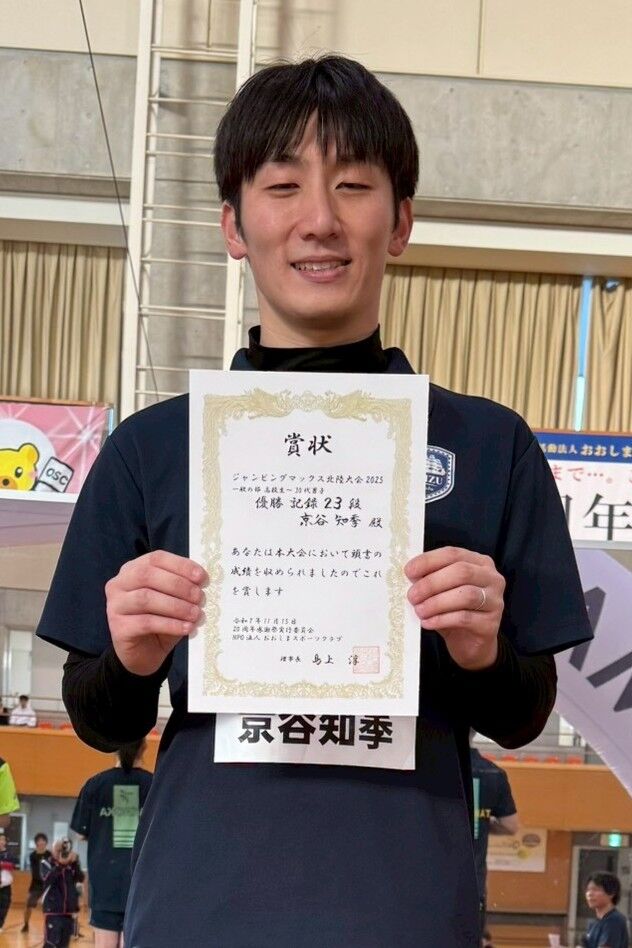 賞状
ジャンピングマックス北陸大会2025
一般の部 高校生～30代男子
優勝 記録 23段
京谷 知季 殿
あなたは本大会において頭書の
成績を収められましたのでこれ
を賞します
令和7年11月15日
20周年感謝祭実行委員会
NPO法人おおしまスポーツクラブ
理事長 島上 淳
京谷知季
OSC
法人おおしま
まで…。
周年